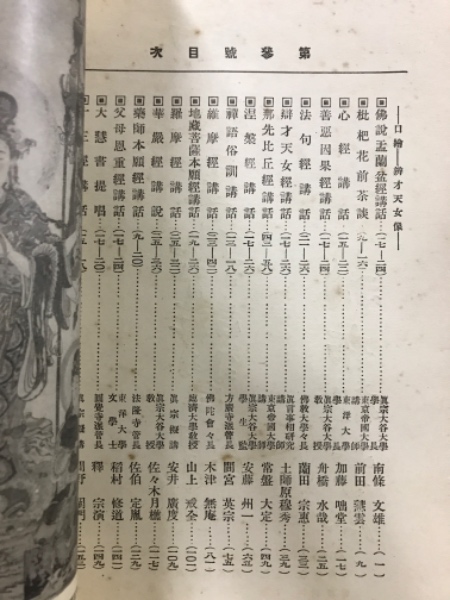 第參號目次
――口繪――辨才天女像――
佛說盂蘭盆經講話…(一七―二四)…眞宗大谷大學學長 南條文雄(一)
枇杷花前茶談…(九―一六)…東京帝國大學講師 前田慧雲(九)
心經講話…(五―一二)…東洋大學教授 加藤咄堂(一七)
善惡因果經講話…(一七―二四)…眞宗大谷大學教授 舟橋水哉(二五)
法句經講話…(一七―二四)…佛教大學々長 薗田宗惠(三三)
辯才天女經講話…(一七―二六)…眞言事相研究講師 土師原穆秀(三九)
那先比丘經講話…(四二―五八)…東京帝國大學講師 常盤大定(四九)
涅槃經講話…(一七―二六)…眞宗大谷大學學生監 安藤州一(六五)
禪語俗訓講話…(一三―一八)…方廣寺派管長 間宮英宗(七五)
維摩經講話…(三三―四二)…佛陀會々長 木津無庵(八一)
地藏菩薩本願經講話…(一九―二六)…臨濟大學教授 山上戒全(一〇一)
羅摩經講話…(一五―二二)…眞宗擬講 安井廣度(一〇九)
華嚴經講說…(一五―二六)…眞宗大谷大學教授 佐々木月樵(一一七)
藥師本願經講話…(九―二〇)…法隆寺管長 佐伯定胤(一二九)
父母恩重經講話…(一七―二四)…東洋大學文學士 稻村修道(一四一)
大慧書提唱…(一七―二〇)…圓覺寺派管長 釋宗演(一四九)